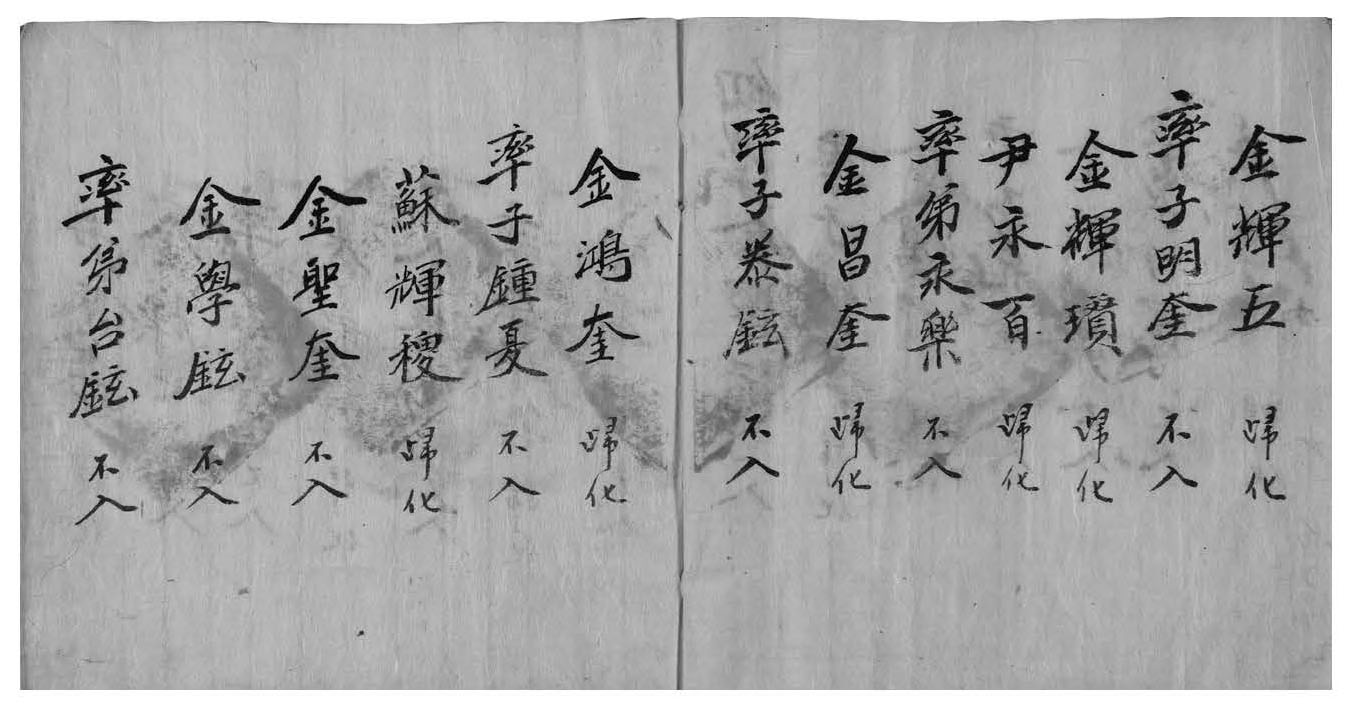 金輝五 歸化
率子明奎 不入
金輝瓚 歸化
尹永百 歸化
率弟永樂 不入
金昌奎 歸化
率子泰鉉 不入
金鴻奎 歸化
率子鍾夏 不入
蘇輝稷 歸化
金聖奎 不入
金學鉉 不入
率弟台鉉 不入